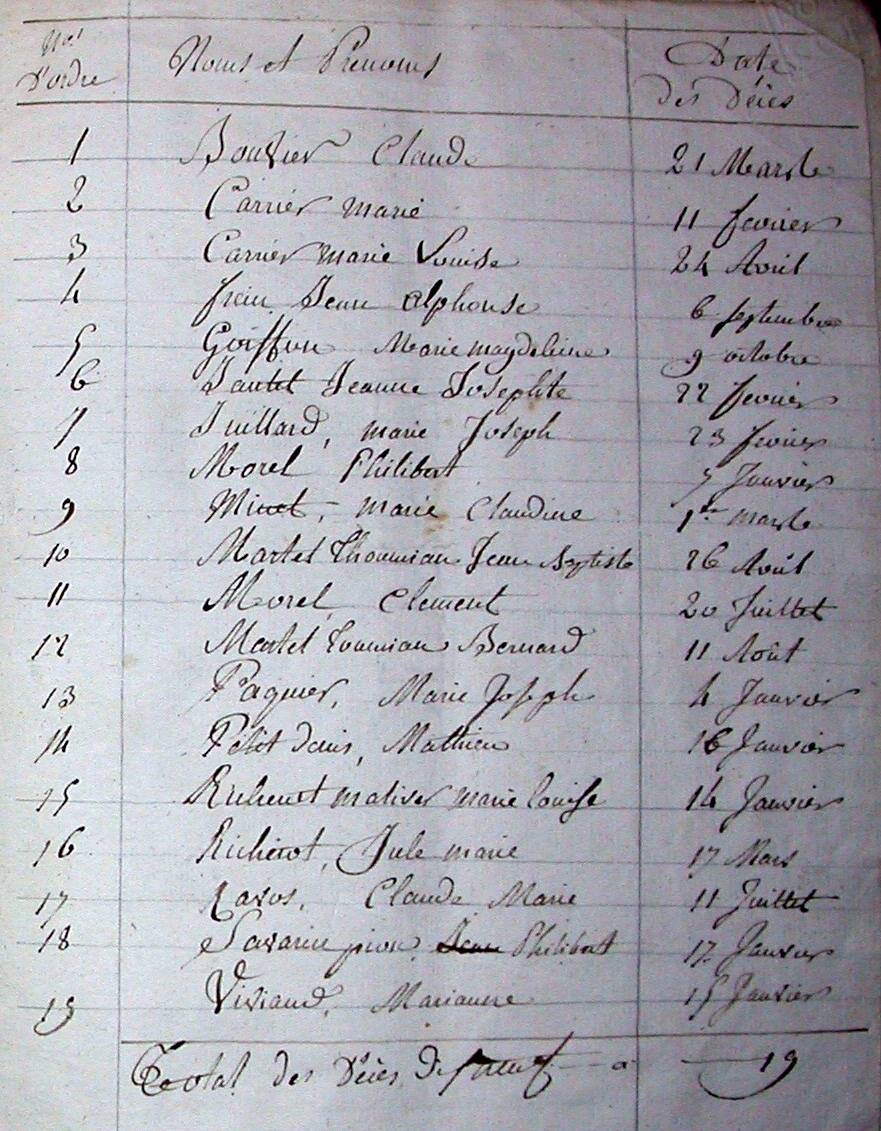 Nos d'ordre Noms et Prénoms Date des Décès
1 Bouvier Claude 21 Marse
2 Carrier marie 11 fevrier
3 Carrier marie Louise 24 Avril
4 Jean Alphonse 6 septembre
5 Goiffon Marie magdeleine 9 octobre
6 Jeanne Josephte 22 fevrier
7 Juillard, marie Joseph 23 fevrier
8 Morel Philibert 5 Janvier
9 Minet, marie Claudine 1er marse
10 Martel Thoumian Jean Baptiste 26 Août
11 Morel Clement 20 Juillet
12 Martel Toumian Bernard 11 Août
13 Paquier, Marie Joseph 4 Janvier
14 Petit Denis, Mathieu 16 Janvier
15 Richerot marie louise 14 Janvier
16 Richerot, Jule marie 17 Mars
17 Ravos, Claude Marie 11 Juillet
18 Savarin pion, Jean Philibert 17 Janvier
19 Viviand, Marianne 15 Janvier
Total des Décès Dix neuf a 19